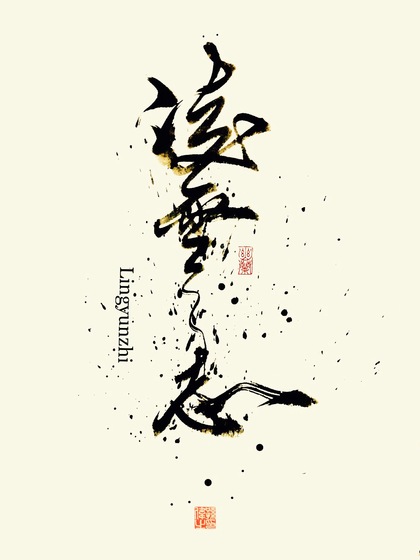 凌雲之志
Lingyunzhi